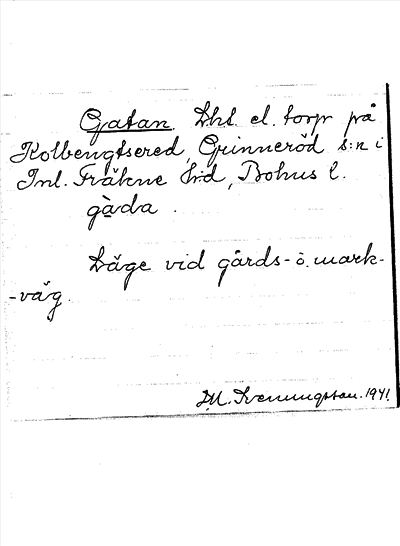 Gatan. Lht el. torp på
Kolbengtsered, Grinneröd s:n i
Inl. Fräkne hd, Bohus l.
gàda.
Läge vid gårds- o. mark-
-väg.
M. Svenungsson. 1941.